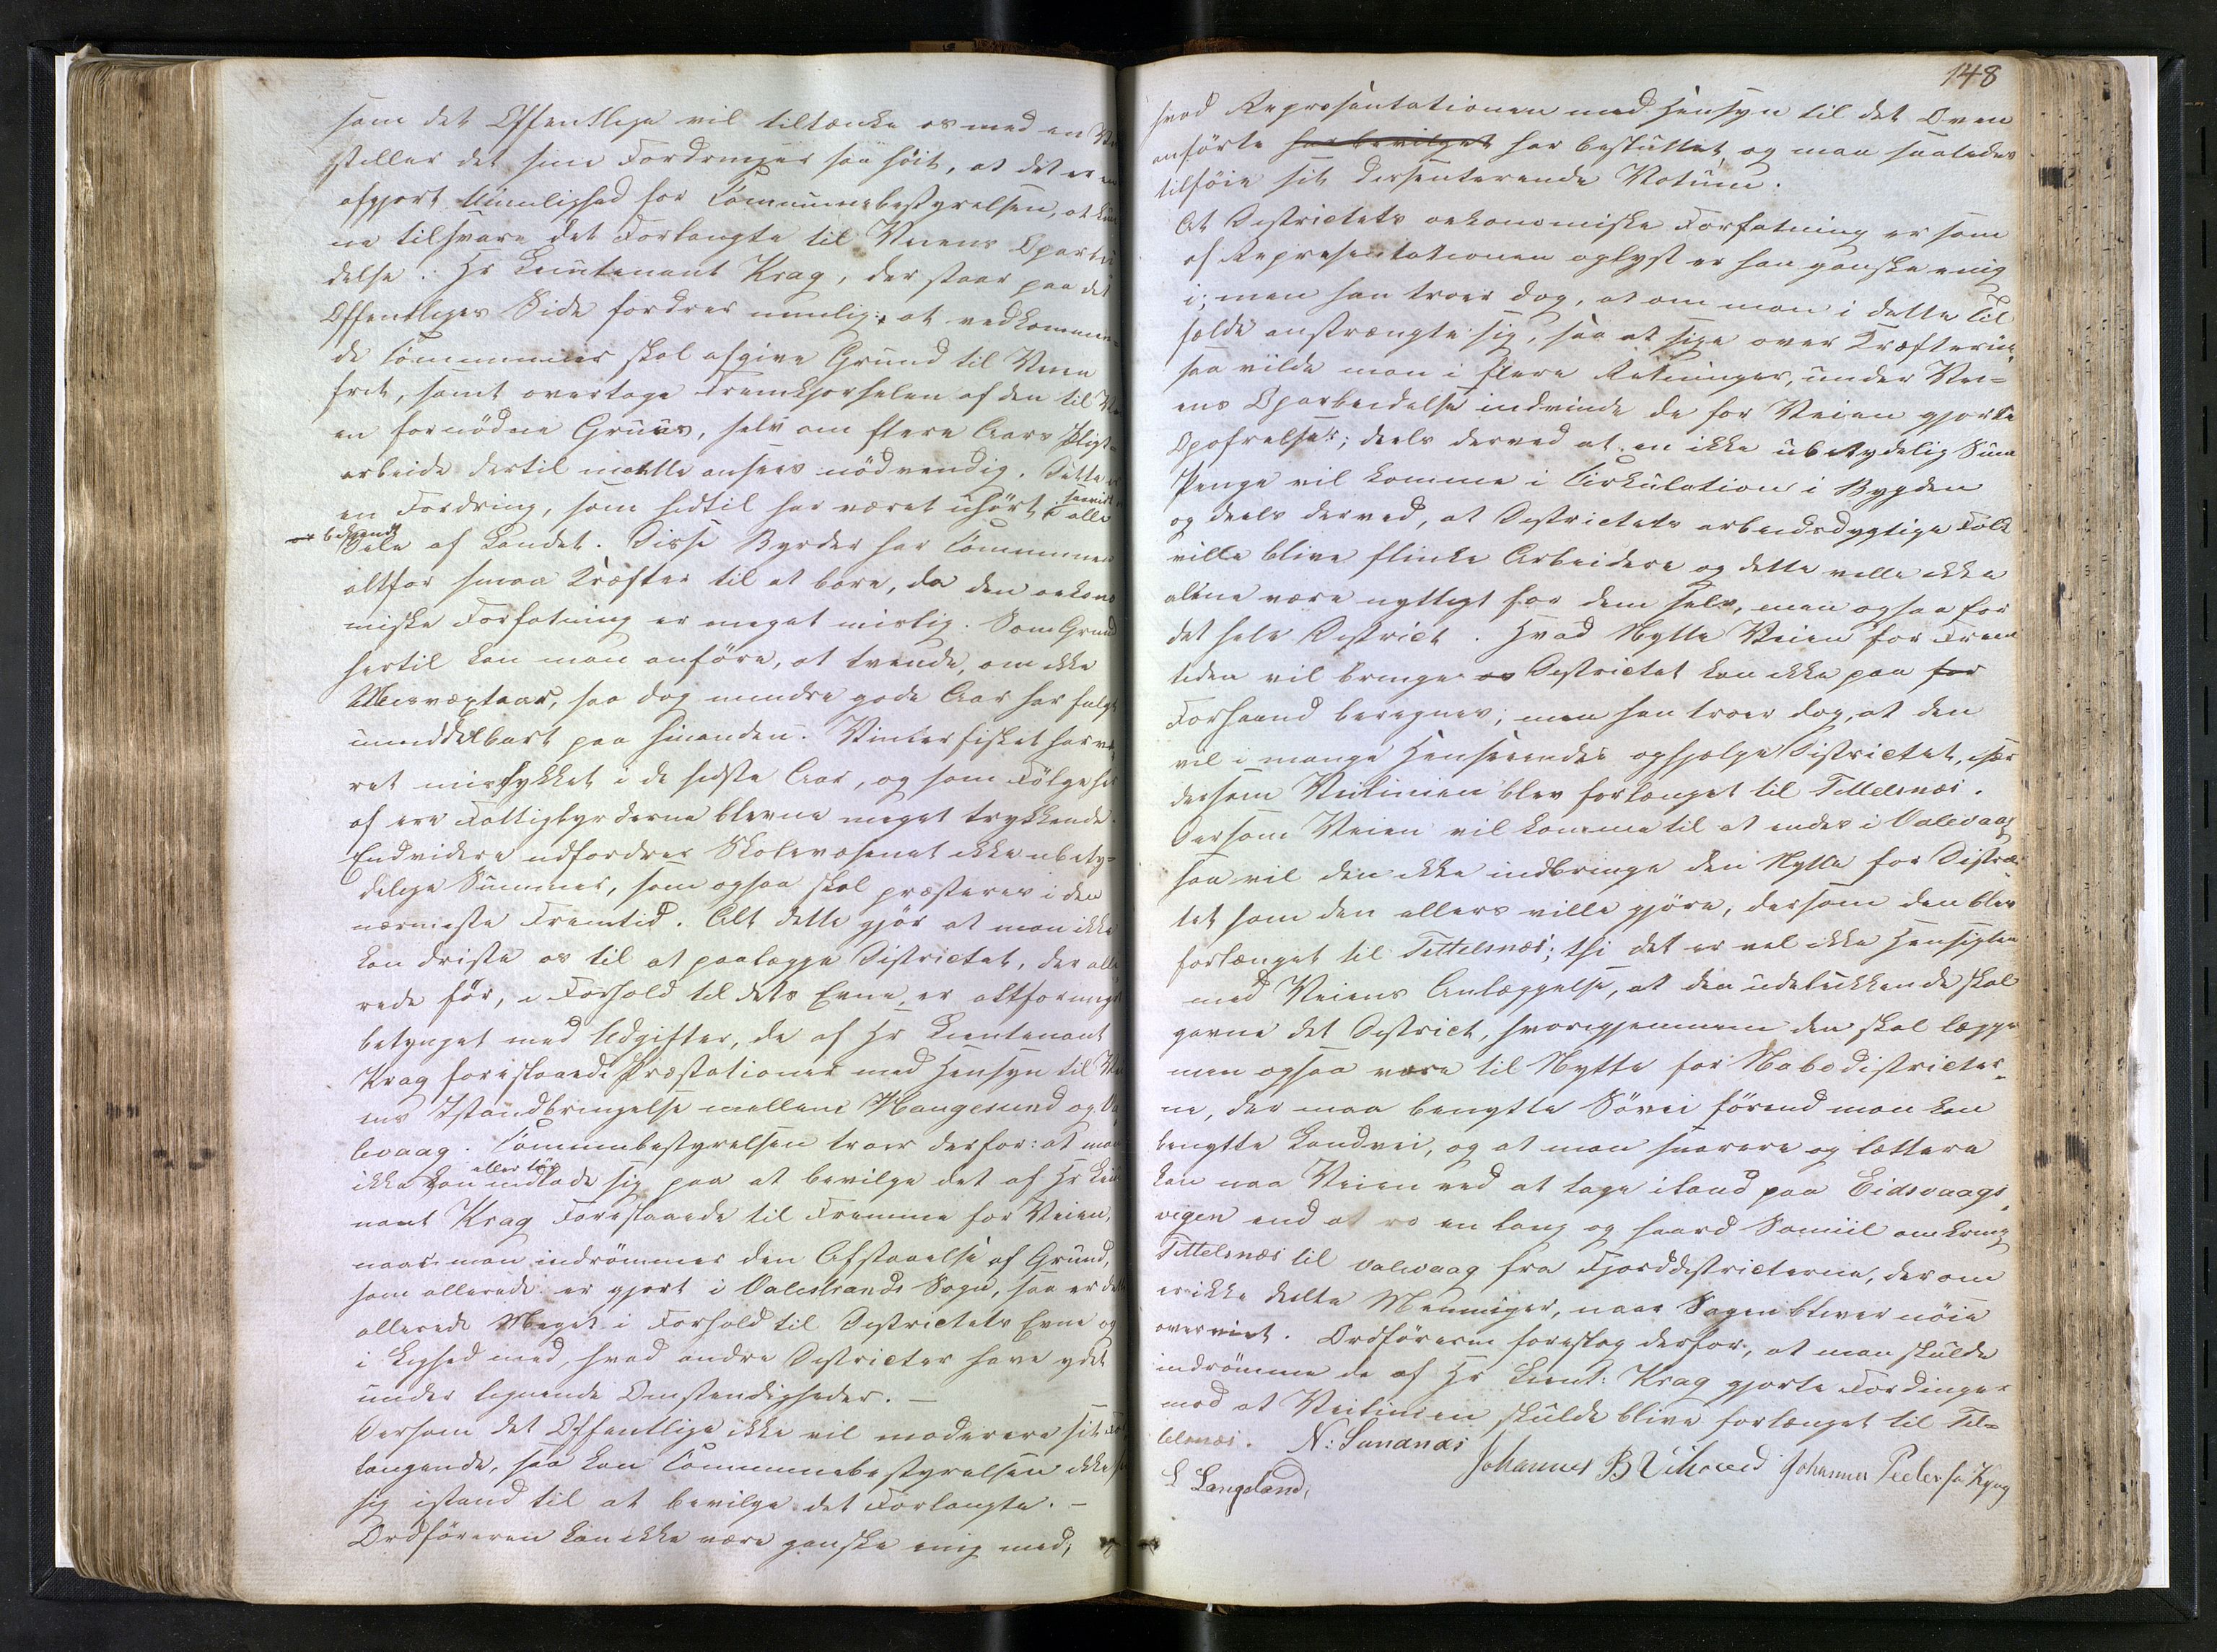 som det Offentlige vil tiltænke os med en
stiller det sine Fordringer saa höit, at det er en
afgjort Umulighed for Communebestyrelsen, at kun
ne tilsvare det Forlangte til Veiens Oparbei
delse. Hr Lieutenant Krag, der staar paa det
Offentliges Side fordrer nemlig: at vedkommen-
de Communer skal afgive Grund til Veien
frit, samt overtage Fremkjørselen af den til Vei
en fornödne Gruus, selv om flere Aars Pligt-
arbeide dertil maatte ansees nödvendig. Dette er
en Fordring, som hidtil har været uhört i alle saavidt
os bekjendt Dele af Landet. Disse Byrder har Communen
altfor smaa Kræfter til at bære, da den oekono
miske Forfatning er meget mislig. Som Grund
hertil kan man anföre, at tvende, om ikke
Misvæxtaar, saa dog mindre gode Aar har fulgt
umiddelbart paa hinanden. Vinterfisket har væ
ret mislykket i de sidste Aar, og som Fölge her
af ere Fattigbyrderne blevne meget trykkende.
Endvidere udfordrer Skolevæsenet ikke ubety-
delige Summer, som ogsaa skal præsteres i den
nærmeste Fremtid. Alt dette gjör at man ikke
kan driste os til at paalægge Districtet, der alle
rede för, i Forhold til dets Evne, er altfor meget
betynget med Udgifter, de af Hr Lieutenant
Krag foreslaaede Præstationer med Hensyn til Vei
ens Istandbringelse mellem Haugesund og Va
levaag. Communebestyrelsen troer derfor: at man
ikke kan eller tör indlade sig paa at bevilge det af Hr Lieu
nant Krag Foreslaaede til Fremme for Veien,
naar man indrömmer den Afstaaelse af Grund,
som allerede er gjort i Valestrands Sogn, saa er dette
allerede Meget i Forhold til Districtets Evne og
i Lighed med, hvad andre Districter have ydet
under lignende Omstændigheder. —
Dersom det Offentlige ikke vil moderere sit For
langende, saa kan Communebestyrelsen ikke se
sig istand til at bevilge det Forlangte. —
Ordföreren kan ikke være ganske enig med,
148
hvad Repræsentationen med Hensyn til det Oven
anförte har bevilget har besluttet, og maa saaledes
tilföie sit dissenterende Votum.
At Districtets oekonomiske Forfatning er som
af Repræsentationen oplyst er han ganske enig
i; men han troer dog, at om man i dette Til
fælde anstrængte sig, saa at sige over Kræfterne,
saa vilde man i flere Retninger, under Vei-
ens Oparbeidelse indvinde de for Veien gjorte
Opofrelser; deels derved at en ikke ubetydelig Sum
Penge vil komme i Cirkulation i Bygden
og deels derved, at Districtets arbeidsdygtige Folk
ville blive flinke Arbeidere og dette ville ikke
alene være nyttigt for dem selv, men ogsaa for
det hele District. Hvad Nytte Veien for Frem
tiden vil bringe os Districtet kan ikke paa for
Forhaand beregnes; men han troer dog, at den
vil i mange Henseender ophjælpe Districtet, især
dersom Veilinien blev forlænget til Tittelsnæs.
Dersom Veien vil komme til at endes i Valevaag
saa vil den ikke indbringe den Nytte for Distric
tet som den ellers ville gjöre, dersom den blev
forlænget til Tittelsnæs; thi det er vel ikke Hensigten
med Veiens Anlæggelse, at den udelukkende skal
gavne det District, hvorigjennem den skal lægges
men ogsaa være til Nytte for Nabodistricter-
ne, der maa benytte Söveien förend man kan
benytte Landvei, og at man snarere og lættere
kan naa Veien ved at tage iland paa Eidsvaags-
vigen end at ro en lang og haard Sømiil omkring
Tittelsnæs til Valevaag fra Fjorddistricterne, derom
er ikke deelte Meninger, naar Sagen bliver nöie
overveiet. Ordföreren foreslog derfor, at man skulde
indrömme de af Hr Lieut: Krag gjorte Fordringer
mod at Veilinien skulde blive forlænget til Tit-
telsnæs. N: Sandnæs Johannes B Vihoved Johannes Peders
L Langeland,